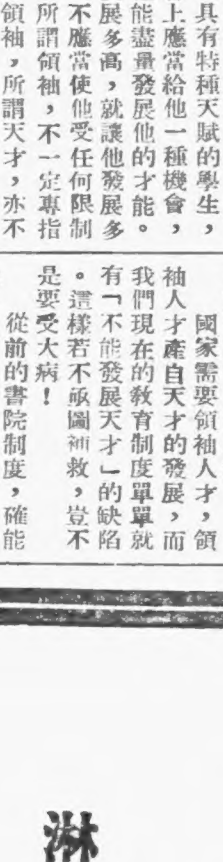 具有特種天賦的學生，
上應當給他一種機會，
能盡量發展他的才能。
展多高，就讓他發展多
不應當使他受任何限制
所謂領袖，不一定專指
領袖，所謂天才，亦不
國家需要領袖人才，領
袖人才產自天才的發展，而
我們現在的教育制度單單就
有「不能發展天才」的缺陷
。這樣若不亟圖補救，豈不
是要受大病！
從前的書院制度，確能
淋